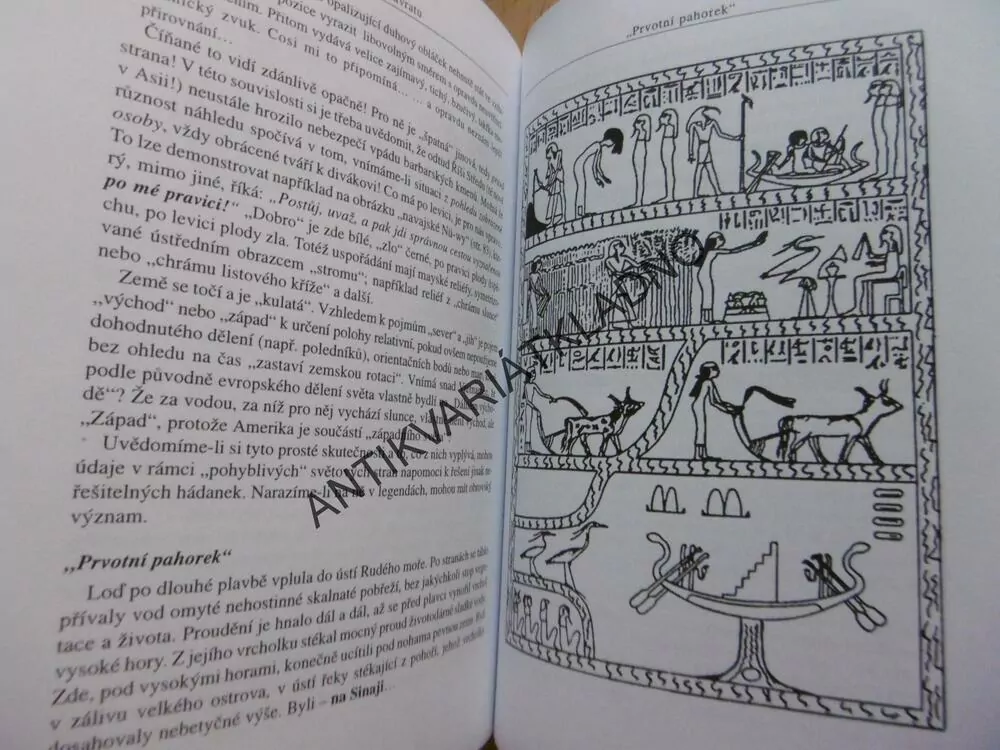 návratu
opalizující duhový obláček nehnutě stát ve vzdu-
pozice vyrazit libovolným směrem s opravdu neuvěřitel-
Přitom vydává velice zajímavý, tichý, bzučivý, takřka
zvuk. Cosi mi to připomíná… … a opravdu neznám lepší
přirovnání…
Číňané to vidí zdánlivě opačně! Pro ně je „špatná“ jinová, tedy pravá
strana! V této souvislosti si je třeba uvědomit, že odtud Říši Středu
v Asii!) neustále hrozilo nebezpečí vpádu barbarských kmenů. Možná že
různost náhledu spočívá v tom, vnímáme-li situaci z pohledu zobrazené
osoby, vždy obrácené tváří k divákovi! Co má po levici, je pro nás vpravo.
To lze demonstrovat například na obrázku „navajské Nü-wy“ (str. 83), kte-
rý, mimo jiné, říká: „Postůj, uvaž, a pak jdi správnou cestou vyznačenou
po mé pravici!“ „Dobro“ je zde bílé, „zlo“ černé, po pravici plody úspě-
chu, po levici plody zla. Totéž uspořádání mají mayské reliéfy, symetrizo-
vané ústředním obrazcem „stromu“; například reliéf z „chrámu slunce“
nebo „chrámu listového kříže“ a další.
Země se točí a je „kulatá“. Vzhledem k pojmům „sever“ a „jih“ je pojem
„východ“ nebo „západ“ k určení polohy relativní, pokud ovšem nepoužijeme
dohodnutého dělení (např. poledníků), orientačních bodů nebo
bez ohledu na čas „zastaví zemskou rotaci“. Vnímá snad
podle původně evropského dělení světa vlastně bydlí na „Dálném výcho-
dě“? Že za vodou, za níž pro něj vychází slunce, východ, ale
„Západ“, protože Amerika je součástí „západního
Uvědomíme-li si tyto prosté skutečnosti a to, co z nich vyplývá, mohou
údaje v rámci „pohyblivých“ světových stran napomoci k řešení jinak ne-
řešitelných hádanek. Narazíme-li na ně v legendách, mohou mít obrovský
význam.
„Prvotní pahorek“
Loď po dlouhé plavbě vplula do ústí Rudého moře. Po stranách se táhla
přívaly vod omyté nehostinné skalnaté pobřeží, bez jakýchkoli stop vege-
tace a života. Proudění je hnalo dál a dál, až se před plavci vynořil vrchol
vysoké hory. Z jejího vrcholku stékal mocný proud životodárné sladké vody.
Zde, pod vysokými horami, konečně ucítili pod nohama pevnou zem. Byli
v zálivu velkého ostrova, v ústí řeky stékající z pohoří, jehož vrcholky
dosahovaly nebetyčné výše. Byli – na Sinaji…
„Prvotní pahorek“
ANTIKVARIÁTKLADNO